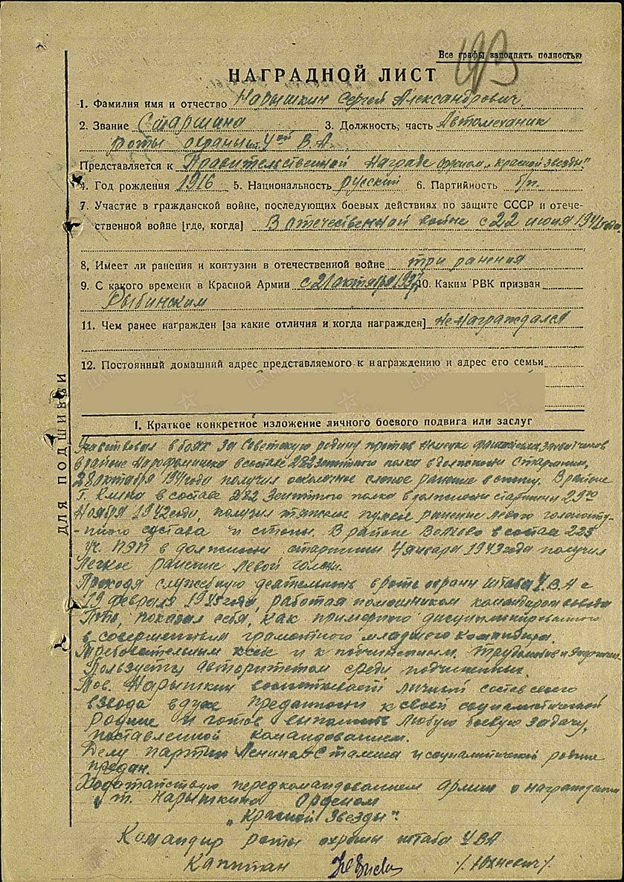 Все графы заполнять полностью
193
НАГРАДНОЙ ЛИСТ
1. Фамилия имя и отчество Нарышкин Сергей Александрович.
2. Звание Старшина 3. Должность, часть Автомеханик
роты охраны В.А.
Представляется к Правительственной Награде орденом „Красной звезды"
4. Год рождения 1916 5. Национальность русский 6. Партийность б/п.
7. Участие в гражданской войне, последующих боевых действиях по защите СССР и отече-
ственной войне [где, когда] В отечественной войне с 22 июня
8, Имеет ли ранения и контузии в отечественной войне три ранения
9. С какого времени в Красной Армии с 21 октября 10. Каким РВК призван
Рыбинским
11. Чем ранее награжден [за какие отличия и когда награжден] не награждался
12. Постоянный домашний адрес представляемого к награждению и адрес его семьи
ДЛЯ ПОДШИВКИ
I. Краткое конкретное изложение личного боевого подвига или заслуг
Участвовал в боях за Советскую родину против
в районе в составе 282 зенитного полка в должности старшины,
28 октября получил осколочное слепое ранение в спину. В районе
г. Клина в составе 282 зенитного полка в должности старшины 29го
Ноября получил тяжелое пулевое ранение левого голеносту-
пного сустава и стопы. В районе в составе 225
в должности старшины 4 декабря 1943 года получил
Легкое ранение левой голени.
Проходя служебную деятельность в роте охраны штаба В.А с
19 февраля 1945 года, работая помошником командира взвода
показал себя, как примерного дисциплинированного
в совершенным грамотного младшего командира.
Требовательным к себе и к подчиненным.
Пользуется авторитетом среди подчиненных.
Тов. Нарышкин воспитывает личный состав своего
взвода в духе преданности к своей социалистической
родине и готов выполнить любую боевую задачу,
поставленной командованием.
Делу партии Ленина-Сталина и социалистической родине
предан.
Ходатайствую перед командованием армии о награждении
т. Нарышкина Орденом
„Красной Звезды".
Командир роты охраны штаба ВА
Капитан